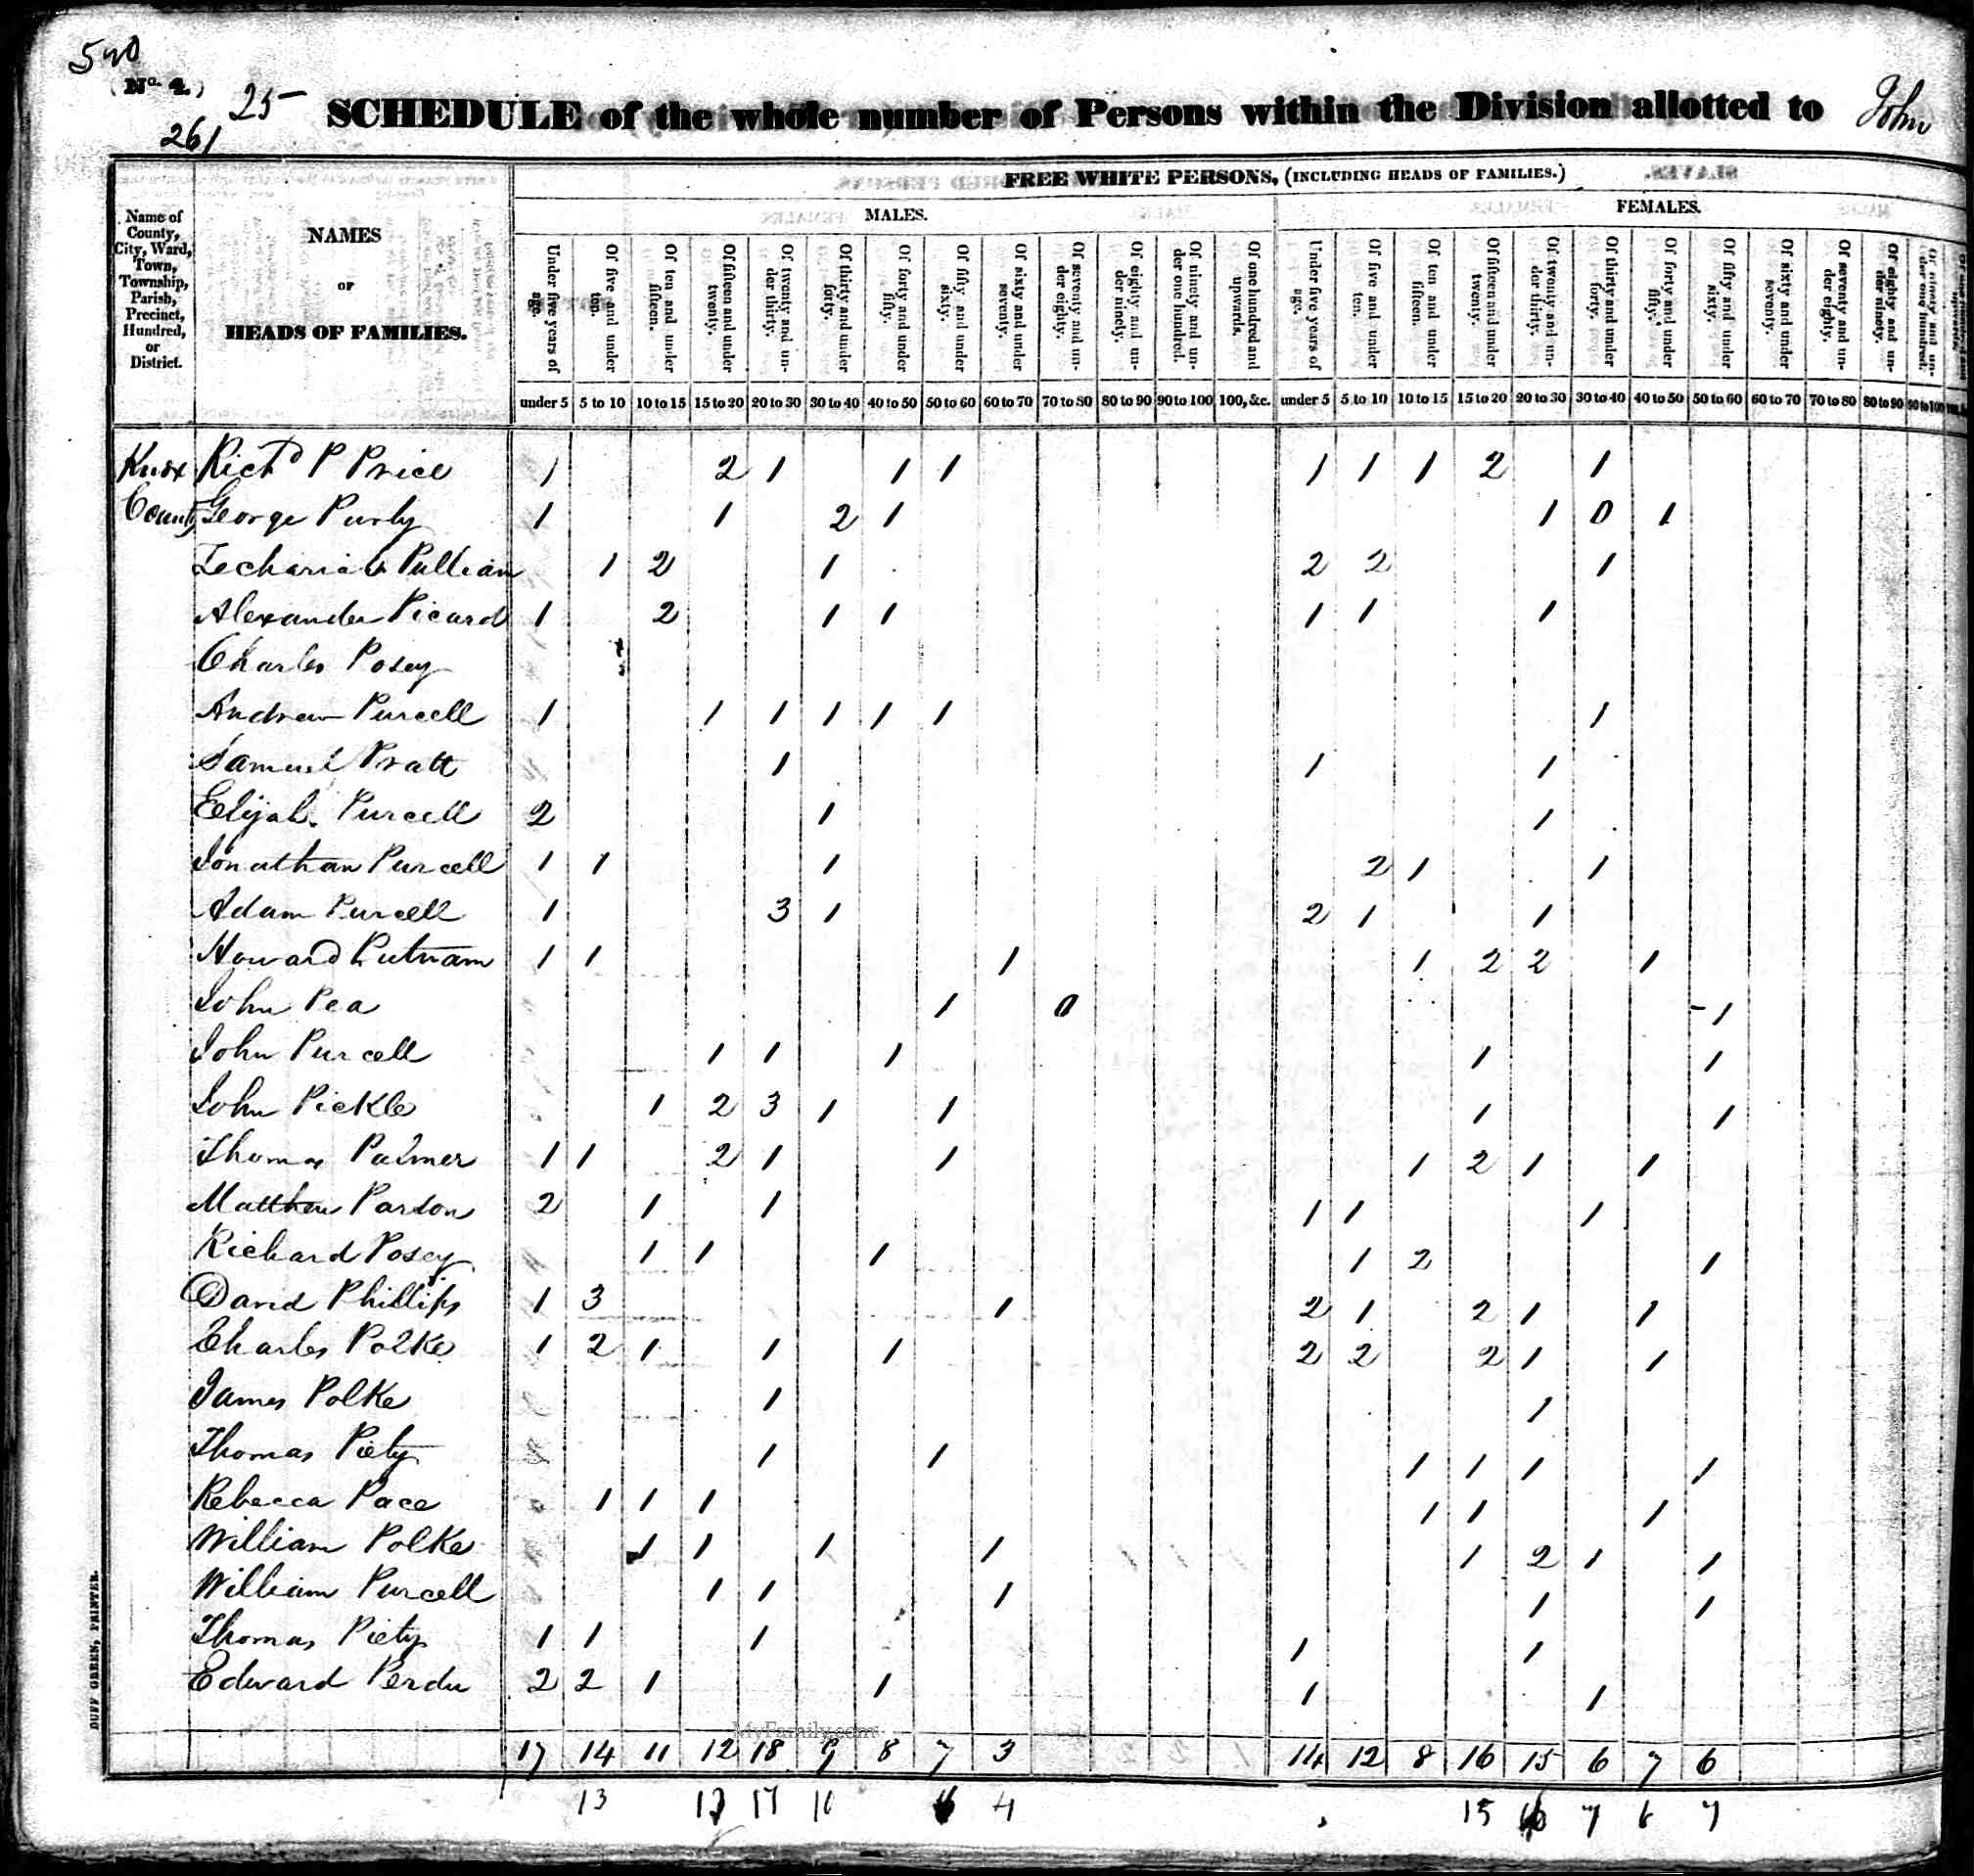 540
(No. 4.) 25 SCHEDULE of the whole number of Persons within the Division allotted to John
261
FREE WHITE PERSONS, (INCLUDING HEADS OF FAMILIES.)
MALES. FEMALES.
Name of County, City, Ward, Town, Township, Parish, Precinct, Hundred, or District.
NAMES
OF
HEADS OF FAMILIES.
Under five years of age. Of five and under ten. Of ten and under fifteen. Of fifteen and under twenty. Of twenty and under thirty. Of thirty and under forty. Of forty and under fifty. Of fifty and under sixty. Of sixty and under seventy. Of seventy and under eighty. Of eighty and under ninety. Of ninety and under one hundred. Of one hundred and upwards. Under five years of age. Of five and under ten. Of ten and under fifteen. Of fifteen and under twenty. Of twenty and under thirty. Of thirty and under forty. Of forty and under fifty. Of fifty and under sixty. Of sixty and under seventy. Of seventy and under eighty. Of eighty and under ninety. Of ninety and under one hundred.
under 5 5 to 10 10 to 15 15 to 20 20 to 30 30 to 40 40 to 50 50 to 60 60 to 70 70 to 80 80 to 90 90 to 100 100, &c. under 5 5 to 10 10 to 15 15 to 20 20 to 30 30 to 40 40 to 50 50 to 60 60 to 70 70 to 80 80 to 90 90 to 100
Knox Richd P Price 1 2 1 1 1 1 1 1 2 1
County George Purly 1 1 2 1 1 0 1
Zechariah Pulliam 1 2 1 2 2 1
Alexander Picard 1 2 1 1 1 1 1
Charles Posey
Andrew Purcell 1 1 1 1 1 1 1
Samuel Pratt 1 1 1
Elijah Purcell 2 1 1
Jonathan Purcell 1 1 1 2 1 1
Adam Purcell 1 3 1 2 1 1
Howard Putnam 1 1 1 1 2 2 1
John Pea 1 0 - 1
John Purcell 1 1 1 1 1
John Pickle 1 2 3 1 1 1 1
Thomas Palmer 1 1 2 1 1 1 2 1 1
Matthew Parson 2 1 1 1 1 1
Richard Posey 1 1 1 1 2 1
David Phillips 1 3 1 2 1 2 1 1
Charles Polke 1 2 1 1 1 2 2 2 1 1
James Polke 1 1
Thomas Piety 1 1 1 1 1 1
Rebecca Pace 1 1 1 1 1 1
William Polke 1 1 1 1 1 2 1 1
William Purcell 1 1 1 1 1
Thomas Piety 1 1 1 1 1
Edward Perdu 2 2 1 1 1 1
MyFamily.com
17 14 11 12 18 9 8 7 3 14 12 8 16 15 6 7 6
13 17 10 4 15 7 7
DUFF GREEN, PRINTER.